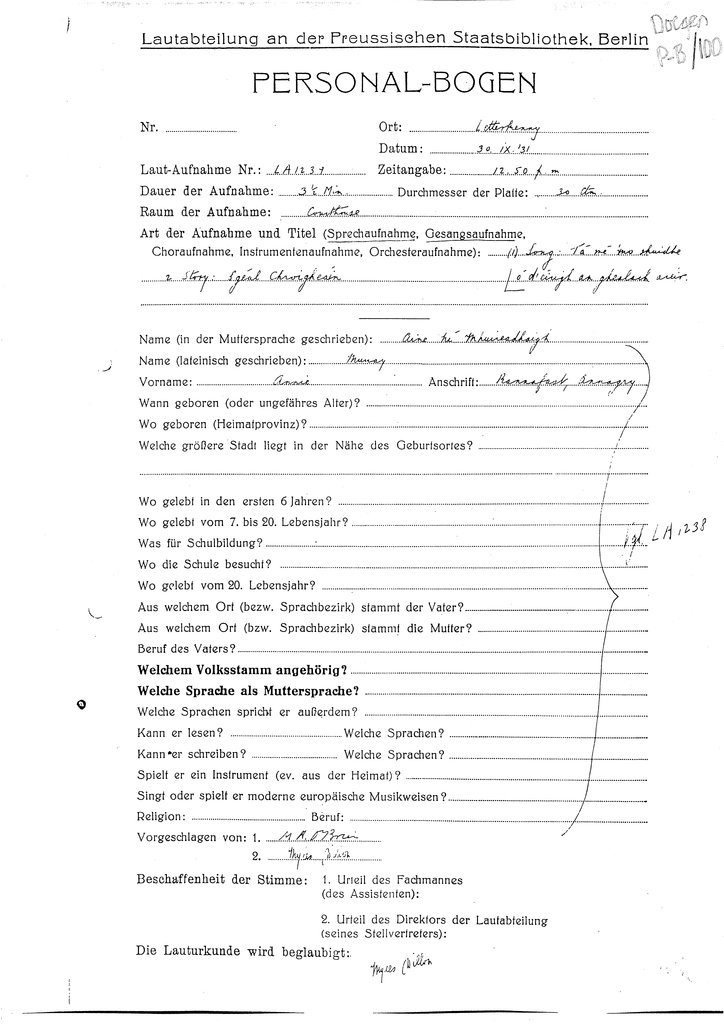 Doegen
Lautabteilung an der Preussischen Staatsbibliothek, Berlin
P-B/100
PERSONAL-BOGEN
Nr. Ort: Letterkenny
Datum: 30. IX. '31
Laut-Aufnahme Nr.: LA1239 Zeitangabe: 12.50 p.m
Dauer der Aufnahme: Min. Durchmesser der Platte: 30 cm.
Raum der Aufnahme: Courthouse
Art der Aufnahme und Titel (Sprechaufnahme, Gesangsaufnahme,
Choraufnahme, Instrumentenaufnahme, Orchesteraufnahme): (1) Song: Tá mé 'mo shuidhe
2 Story: Sgéul ó d'éirigh an ghealach aréir.
Name (in der Muttersprache geschrieben): Aine
Name (lateinisch geschrieben): Murray
Vorname: Annie Anschrift: Rannafast, Annagry
Wann geboren (oder ungefähres Alter)?
Wo geboren (Heimatprovinz)?
Welche größere Stadt liegt in der Nähe des Geburtsortes?
Wo gelebt in den ersten 6 Jahren?
Wo gelebt vom 7. bis 20. Lebensjahr?
Was für Schulbildung? vgl. LA1238
Wo die Schule besucht?
Wo gelebt vom 20. Lebensjahr?
Aus welchem Ort (bezw. Sprachbezirk) stammt der Vater?
Aus welchem Ort (bzw. Sprachbezirk) stammt die Mutter?
Beruf des Vaters?
Welchem Volksstamm angehörig?
Welche Sprache als Muttersprache?
Welche Sprachen spricht er außerdem?
Kann er lesen? Welche Sprachen?
Kann er schreiben? Welche Sprachen?
Spielt er ein Instrument (ev. aus der Heimat)?
Singt oder spielt er moderne europäische Musikweisen?
Religion: Beruf:
Vorgeschlagen von: 1. M. A. O'Brien
2. Myles Dillon
Beschaffenheit der Stimme: 1. Urteil des Fachmannes
(des Assistenten):
2. Urteil des Direktors der Lautabteilung
(seines Stellvertreters):
Die Lauturkunde wird beglaubigt:
Myles Dillon